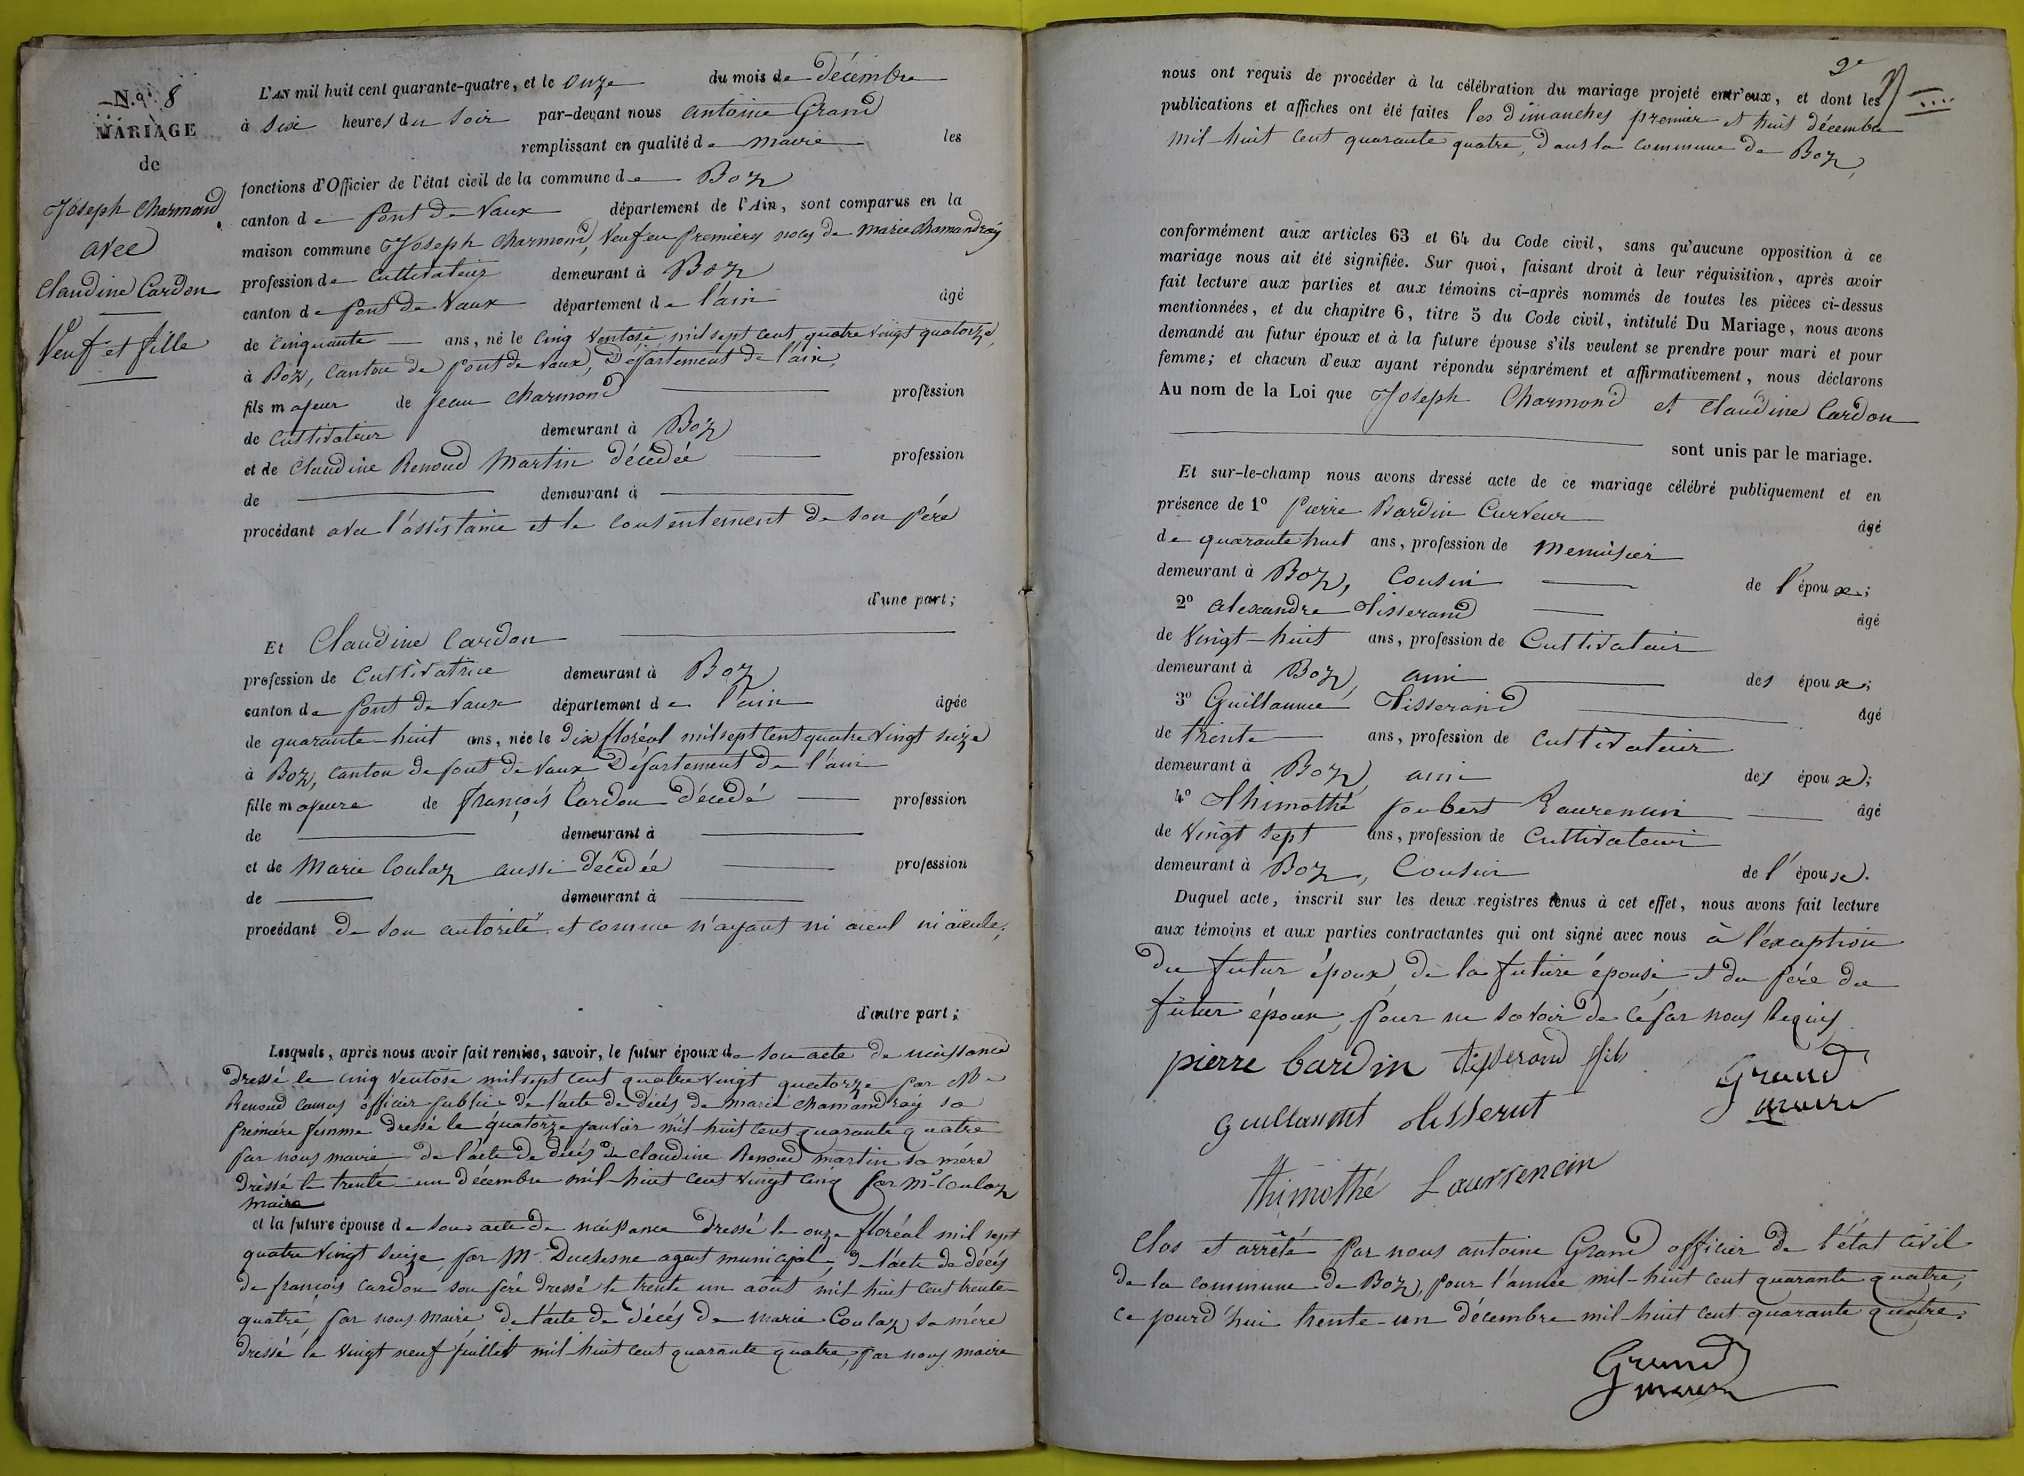 N.º 8
MARIAGE
de
Joseph Charmond
avec
Claudine Cardon
Veuf et fille
L'AN mil huit cent quarante-quatre, et le onze du mois de décembre
à six heures du soir par-devant nous antoine Grand
remplissant en qualité de maire les
fonctions d'Officier de l'état civil de la commune de Boz
canton de pont de Vaux département de l'Ain, sont comparus en la
maison commune Joseph Charmond, Veuf en premières noces de marie chamandray
profession de Cultivateur demeurant à Boz
canton de pont de Vaux département de l'ain âgé
de cinquante ans, né le cinq Ventose mil sept cent quatre vingt quatorze,
à Boz, canton de pont de Vaux, Département de l'ain,
fils majeur de jean charmond profession
de Cultivateur demeurant à Boz
et de Claudine Renoud Martin décédée profession
de demeurant à
procédant avec l'assistance et le consentement de son père
d'une part;
Et Claudine Cardon
profession de Cultivatrice demeurant à Boz
canton de pont de Vaux département de l'ain âgée
de quarante-huit ans, née le dix floréal mil sept cent quatre vingt seize
à Boz, canton de pont de Vaux Département de l'ain
fille majeure de françois Cardon décédé profession
de demeurant à
et de Marie Coulaz aussi décédée profession
de demeurant à
procédant de son autorité et comme n'ayant ni aieul ni aieule;
d'autre part;
Lesquels, après nous avoir fait remise, savoir, le futur époux de son acte de naissance
dressé le cinq Ventose mil sept cent quatre vingt quatorze par
Renoud camus officier public de l'acte de décès de marie chamandray sa
première femme dressé le quatorze janvier mil huit cent quarante quatre
par nous maire de l'acte de décès de claudine Renoud martin sa mère
dressé le trente-un décembre mil-huit cent vingt cinq par Mr Coulaz
maire
et la future épouse de son acte de naissance dressé le onze floréal mil sept
quatre vingt seize, par Mr Duchesne agent municipal, de l'acte de décès
de françois cardon son père dressé le trente un août mil huit cent trente-
quatre par nous maire de l'acte de décès de marie Coulaz sa mère
dressé le vingt neuf juillet mil huit cent quarante quatre, par nous maire
2e
nous ont requis de procéder à la célébration du mariage projeté entr'eux, et dont les
publications et affiches ont été faites les dimanches premier et huit décembre
mil-huit cent quarante quatre, dans la commune de Boz,
conformément aux articles 63 et 64 du Code civil, sans qu'aucune opposition à ce
mariage nous ait été signifiée. Sur quoi, faisant droit à leur réquisition, après avoir
fait lecture aux parties et aux témoins ci-après nommés de toutes les pièces ci-dessus
mentionnées, et du chapitre 6, titre 5 du Code civil, intitulé Du Mariage, nous avons
demandé au futur époux et à la future épouse s'ils veulent se prendre pour mari et pour
femme; et chacun d'eux ayant répondu séparément et affirmativement, nous déclarons
Au nom de la Loi que Joseph Charmond et Claudine Cardon
sont unis par le mariage.
Et sur-le-champ nous avons dressé acte de ce mariage célébré publiquement et en
présence de 1º Pierre Bardin Curveur âgé
de quarante huit ans, profession de menuisier
demeurant à Boz, Cousin de l'époux;
2º alexandre Tisserand âgé
de vingt-huit ans, profession de Cultivateur
demeurant à Boz, ami des époux;
3º Guillaume Tisserand âgé
de trente ans, profession de Cultivateur
demeurant à Boz, ami des époux;
4º Thimothé joubert Laurencin âgé
de vingt sept ans, profession de Cultivateur
demeurant à Boz, Cousin de l'épouse.
Duquel acte, inscrit sur les deux registres tenus à cet effet, nous avons fait lecture
aux témoins et aux parties contractantes qui ont signé avec nous à l'exception
du futur époux, de la future épouse et du père du
futur époux, pour ne savoir de ce par nous Requis
pierre bardin tisserand fils
Grand
maire
guillaume tisserut
thimothé Laurencin
Clos et arrêté par nous antoine Grand officier de l'état civil
de la commune de Boz, pour l'année mil-huit cent quarante quatre,
ce jourd'hui trente-un décembre mil-huit cent quarante quatre.
Grand
maire